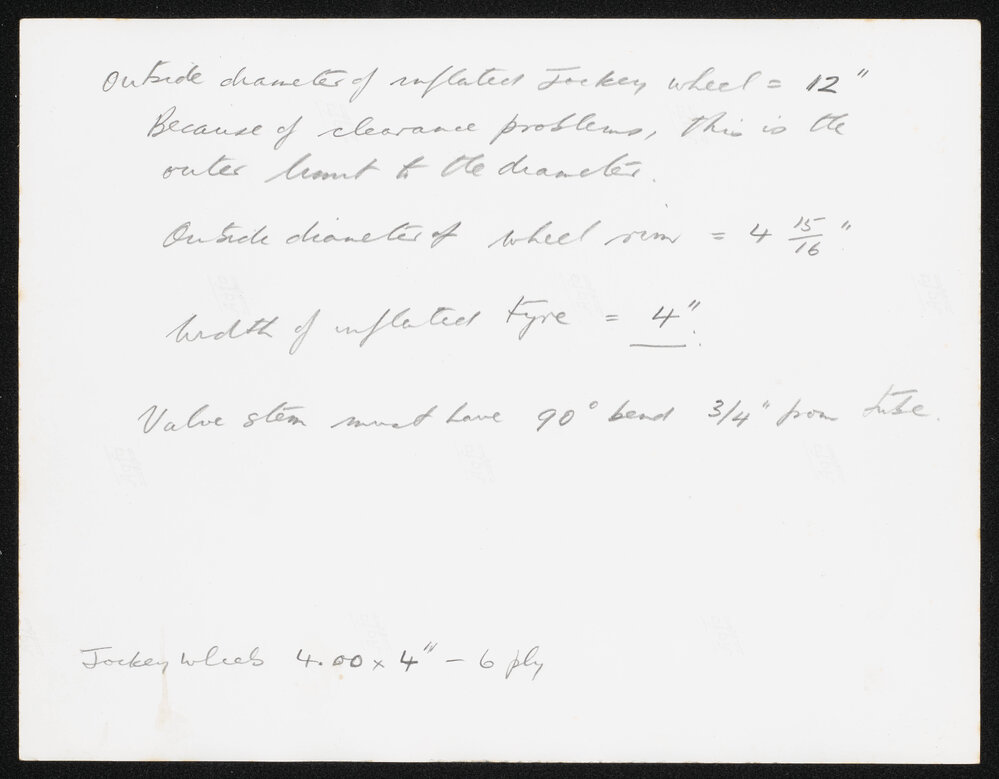 Outside diameter of inflated Jockey wheel = 12"
Because of clearance problems, this is the
outer limit to the diameter.
Outside diameter of wheel rim = 4 15/16".
Width of inflated tyre = 4".
Valve stem must have 90° bend 3/4" from tube.
Jockey wheels 4.00 x 4" - 6 ply